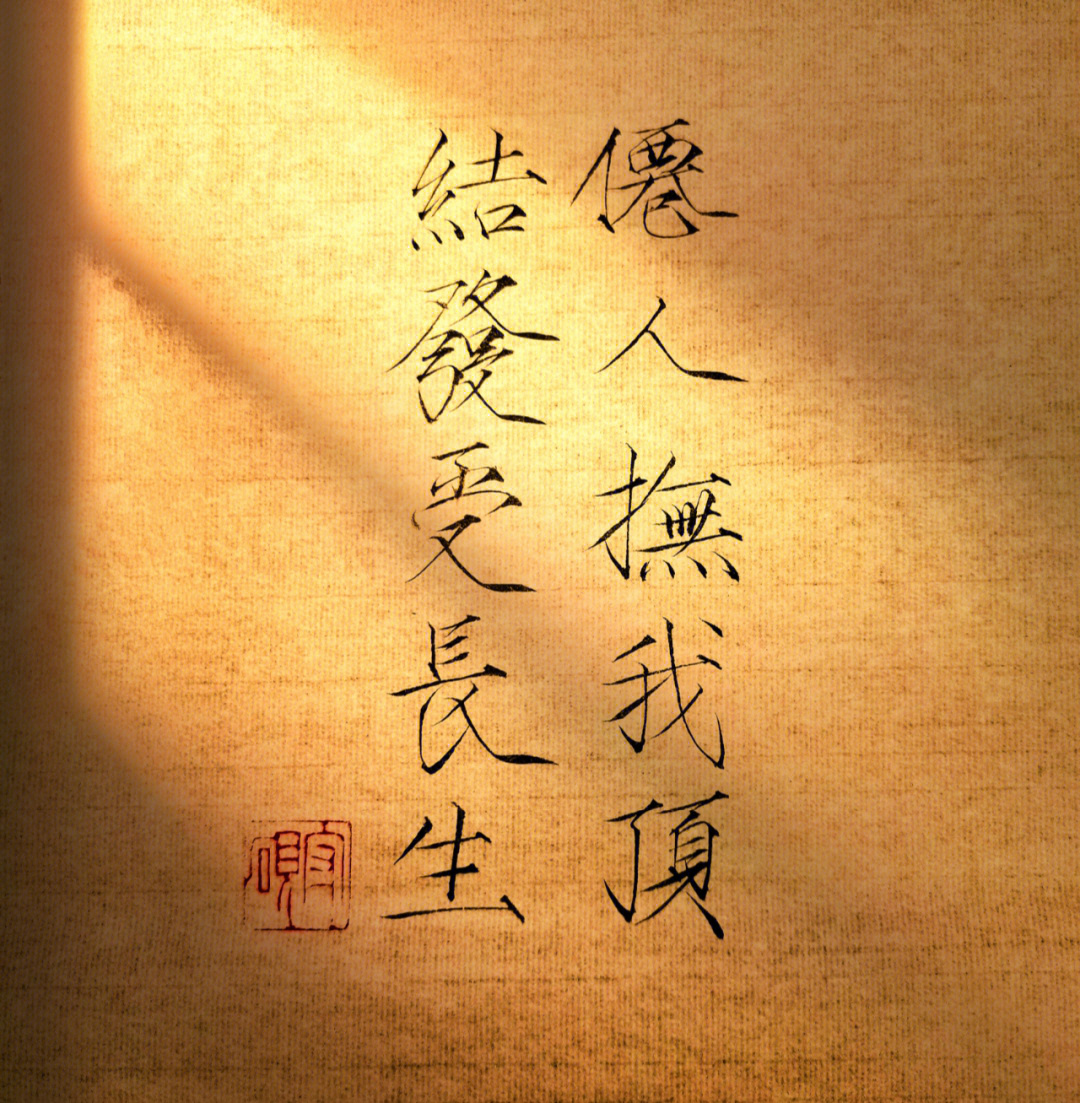 僊人撫我頂
結發受長生